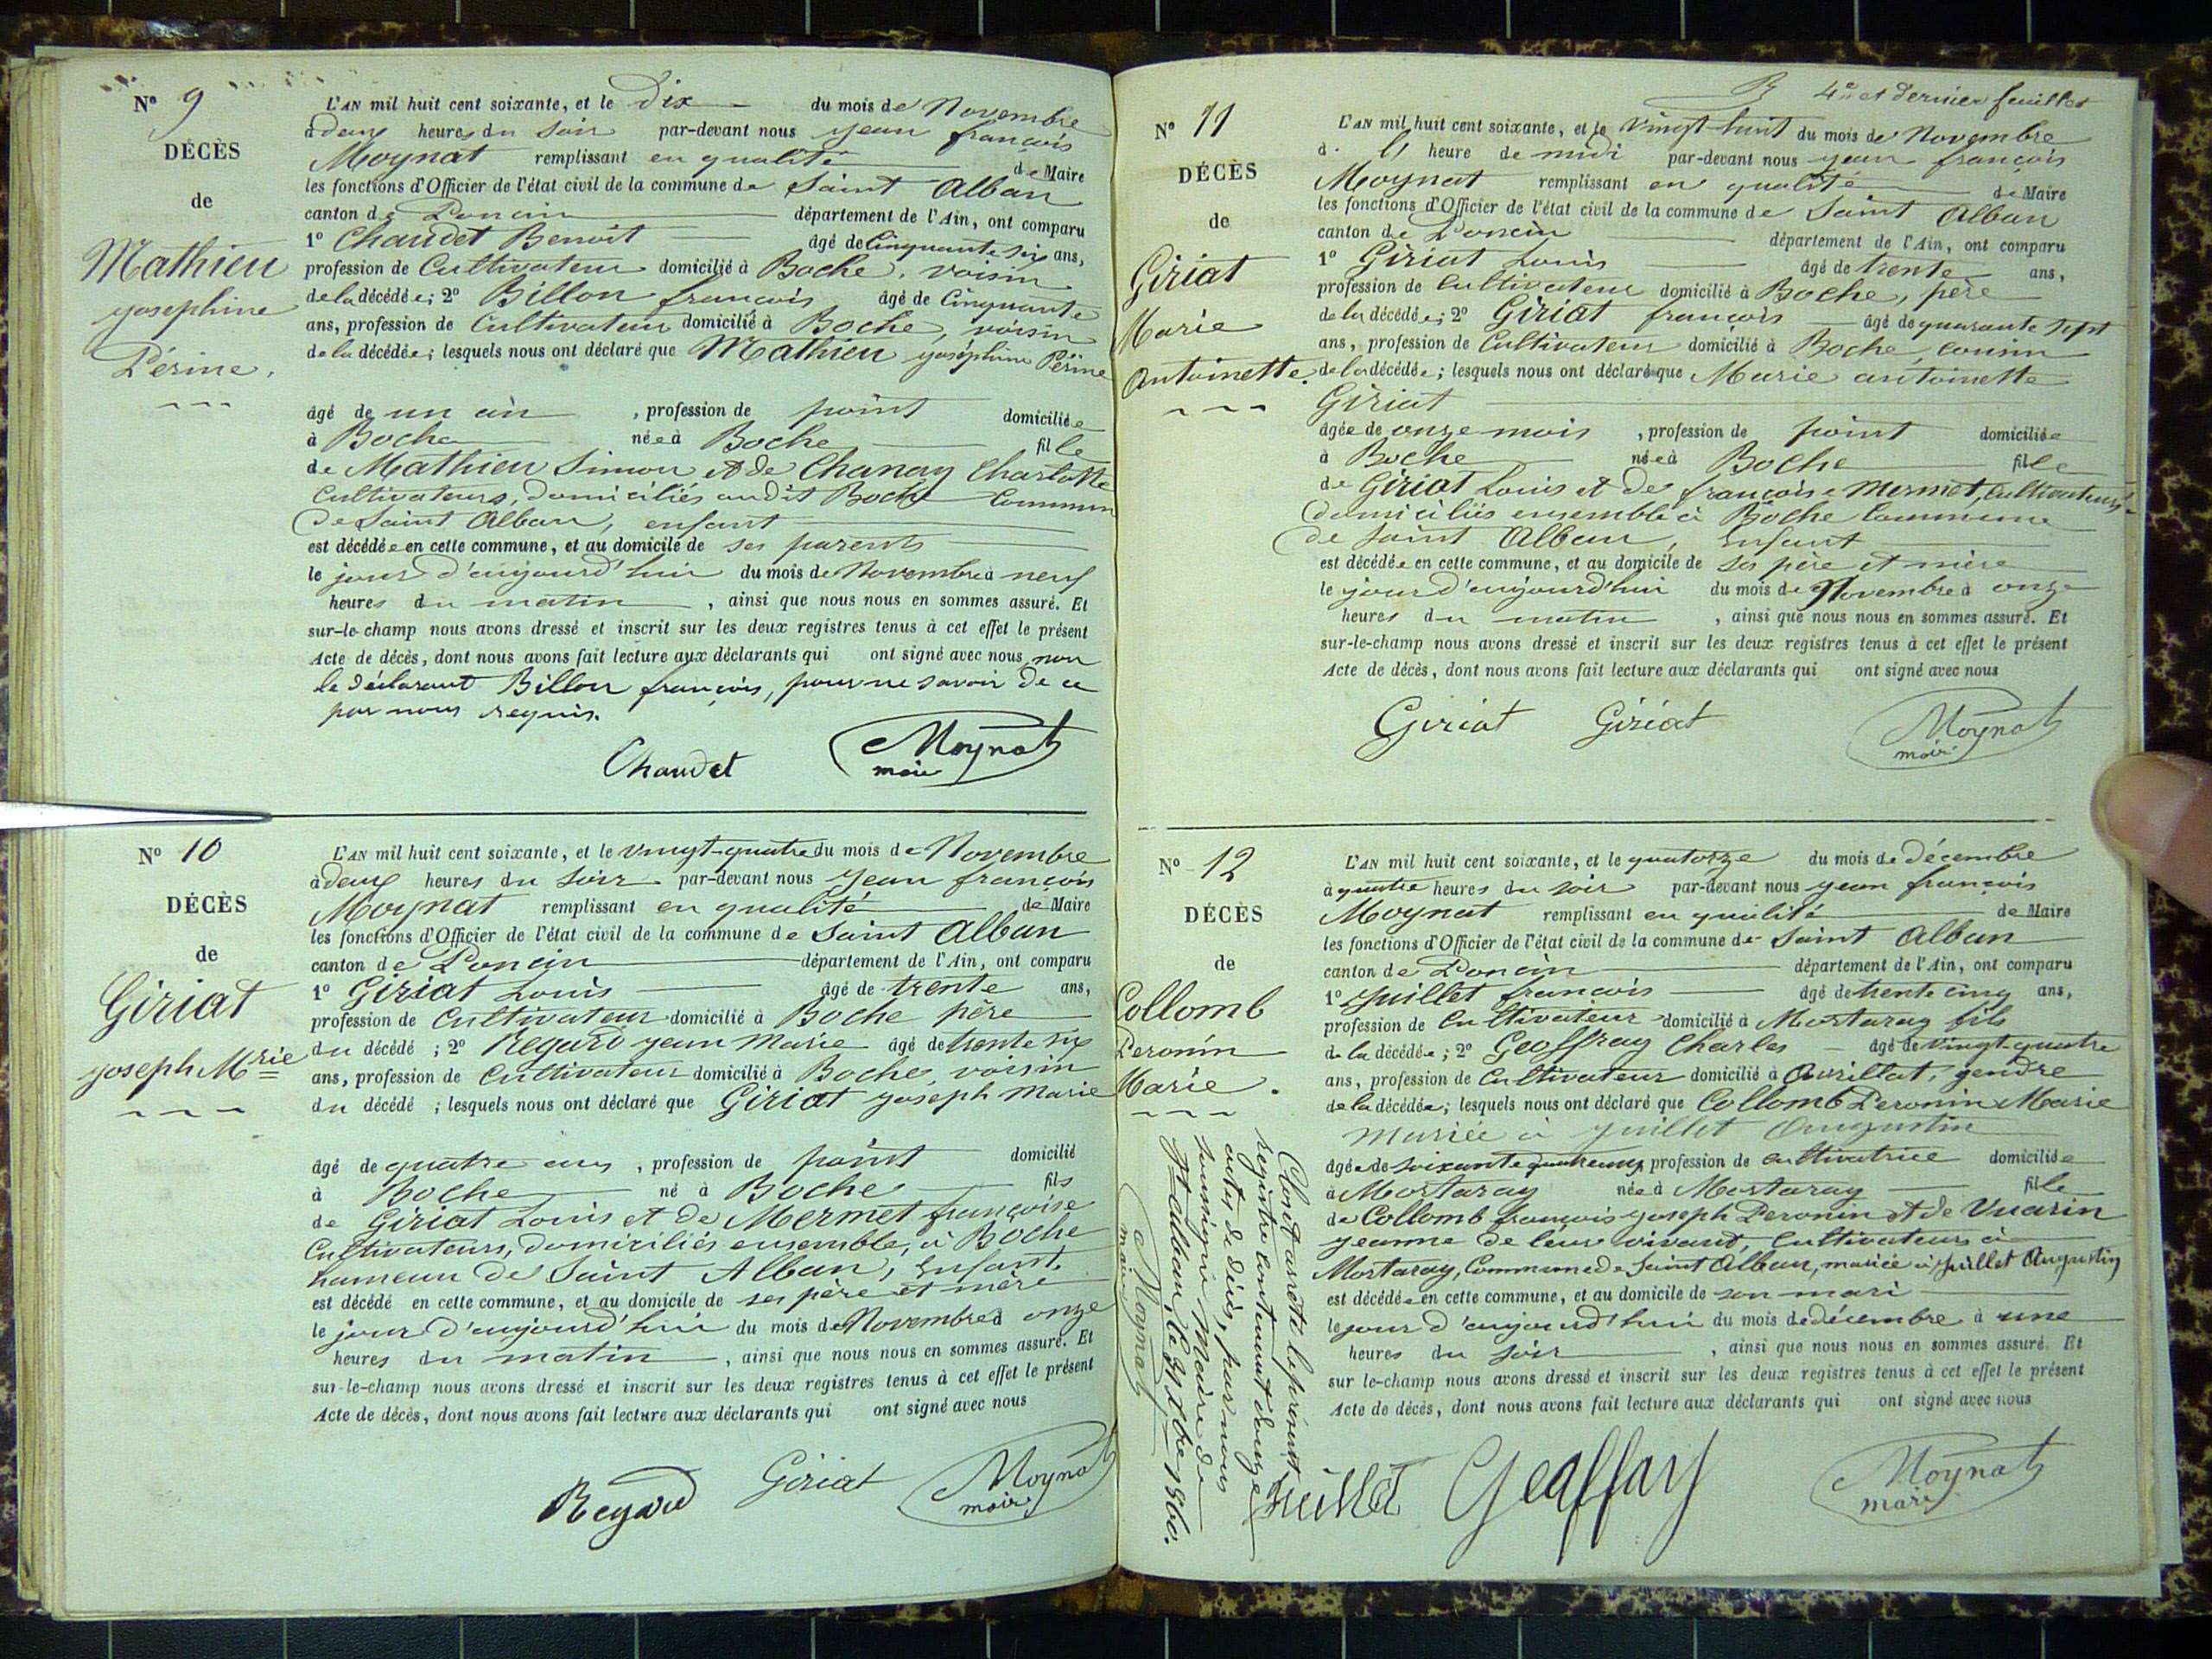 Nº 9
DÉCÈS
de
Mathieu
josephine
Périne.
L'AN mil huit cent soixante, et le Dix du mois de Novembre
à deux heures du soir par-devant nous jean françois
Moynat remplissant en qualité de Maire
les fonctions d'Officier de l'état civil de la commune de Saint Alban
canton de Poncin département de l'Ain, ont comparu
1º Chaudet Benoit âgé de Cinquante six ans,
profession de Cultivateur domicilié à Boche, voisin
de la décédée; 2º Billon françois âgé de Cinquante
ans, profession de Cultivateur domicilié à Boche, voisin
de la décédée; lesquels nous ont déclaré que Mathieu joséphine Périne
âgé de un an , profession de point domiciliée
à Boche née à Boche fille
de Mathieu Simon et de Chanay Charlotte
Cultivateurs, domiciliés audit Boche Commun
de Saint Alban, enfant
est décédée en cette commune, et au domicile de ses parents
le jour d'aujourd'hui du mois de Novembre à neuf
heures du matin , ainsi que nous nous en sommes assuré. Et
sur-le-champ nous avons dressé et inscrit sur les deux registres tenus à cet effet le présent
Acte de décès, dont nous avons fait lecture aux déclarants qui ont signé avec nous non
le déclarant Billon françois, pour ne savoir de ce
par nous requis.
Chaudet Moynat
maire
Nº 10
DÉCÈS
de
Giriat
joseph Mrie
L'AN mil huit cent soixante, et le vingt-quatre du mois de Novembre
à deux heures du soir par-devant nous jean françois
Moynat remplissant en qualité de Maire
les fonctions d'Officier de l'état civil de la commune de Saint Alban
canton de Poncin département de l'Ain, ont comparu
1º Giriat Louis âgé de trente ans,
profession de Cultivateur domicilié à Boche père
du décédé ; 2º Regard jean Marie âgé de trente six
ans, profession de Cultivateur domicilié à Boche, voisin
du décédé ; lesquels nous ont déclaré que Giriat joseph Marie
âgé de quatre ans , profession de point domicilié
à Boche né à Boche fils
de Giriat Louis et de Mermet françoise
Cultivateurs, domiciliés ensemble, à Boche
hameau de Saint Alban, Enfant
est décédé en cette commune, et au domicile de ses père et mère
le jour d'aujourd'hui du mois de Novembre à onze
heures du matin , ainsi que nous nous en sommes assuré. Et
sur-le-champ nous avons dressé et inscrit sur les deux registres tenus à cet effet le présent
Acte de décès, dont nous avons fait lecture aux déclarants qui ont signé avec nous
Regard Giriat Moynat
maire
4e et dernier feuillet
Nº 11
DÉCÈS
de
Giriat
Marie
Antoinette.
L'AN mil huit cent soixante, et le vingt-huit du mois de Novembre
à heure de midi par-devant nous jean françois
Moynat remplissant en qualité de Maire
les fonctions d'Officier de l'état civil de la commune de Saint Alban
canton de Poncin département de l'Ain, ont comparu
1º Giriat Louis âgé de trente ans,
profession de Cultivateur domicilié à Boche, père
de la décédée; 2º Giriat françois âgé de quarante sept
ans, profession de Cultivateur domicilié à Boche, cousin
de la décédée; lesquels nous ont déclaré que Marie antoinette
Giriat
âgée de onze mois , profession de point domiciliée
à Boche née à Boche fille
de Giriat Louis et de françoise Mermet, Cultivateurs
domiciliés ensemble à Boche Commune
de Saint Alban, Enfant
est décédée en cette commune, et au domicile de ses père et mère
le jour d'aujourd'hui du mois de Novembre à onze
heures du matin , ainsi que nous nous en sommes assuré. Et
sur-le-champ nous avons dressé et inscrit sur les deux registres tenus à cet effet le présent
Acte de décès, dont nous avons fait lecture aux déclarants qui ont signé avec nous
Giriat Giriat Moynat
maire
Nº 12
DÉCÈS
de
Collomb
Peronin
Marie.
L'AN mil huit cent soixante, et le quatorze du mois de décembre
à quatre heures du soir par-devant nous jean françois
Moynat remplissant en qualité de Maire
les fonctions d'Officier de l'état civil de la commune de Saint Alban
canton de Poncin département de l'Ain, ont comparu
1º juillet françois âgé de trente cinq ans,
profession de Cultivateur domicilié à Mortaray fils
de la décédée; 2º Geoffray Charles âgé de vingt-quatre
ans, profession de Cultivateur domicilié à Avrillat, gendre
de la décédée; lesquels nous ont déclaré que Collomb Peronin Marie
mariée à juillet Augustin
âgée de soixante quatre ans, profession de cultivatrice domiciliée
à Mortaray née à Mortaray fille
de Collomb françois joseph Peronin et de Vuarin
jeanne de leur vivant, Cultivateurs à
Mortaray, Commune de Saint Alban, mariée à juillet Augustin
est décédée en cette commune, et au domicile de son mari
le jour d'aujourd'hui du mois de décembre à une
heures du soir , ainsi que nous nous en sommes assuré. Et
sur le-champ nous avons dressé et inscrit sur les deux registres tenus à cet effet le présent
Acte de décès, dont nous avons fait lecture aux déclarants qui ont signé avec nous
juillet Geoffray Moynat
maire
Clos et arrêté le présent
registre contenant douze
actes de décès, par nous
soussigné Maire de
St Alban, le 31 xbre 1860.
Moynat
maire